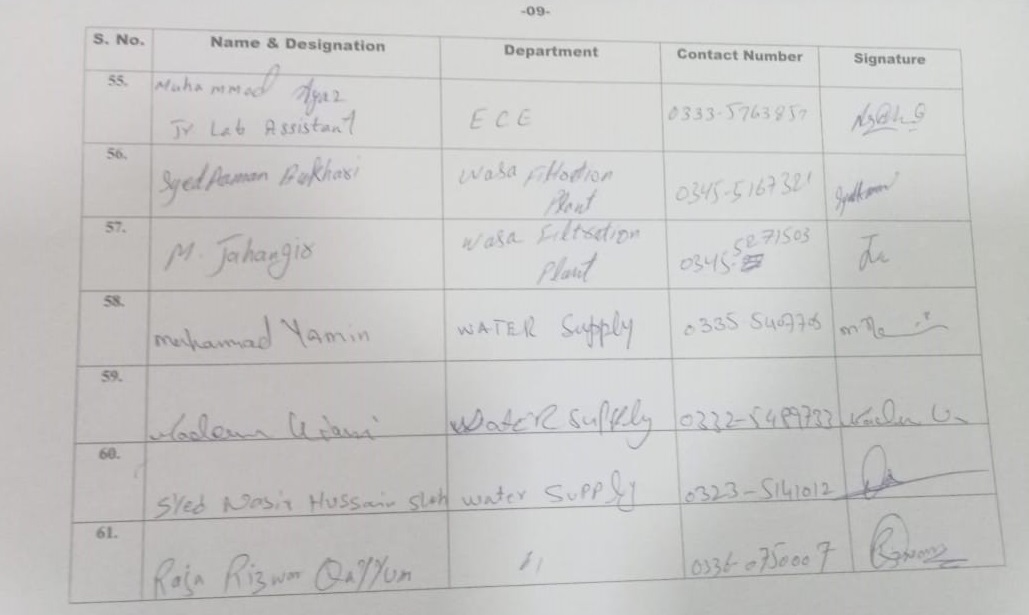 -09-
S. No. Name & Designation Department Contact Number Signature
55. Muhammad Ayaz
Jr Lab Assistant ECE 0333-5763857
56. Syed Aaman Bukhari Wasa Filtration
Plant 0345-5167321
57. M. Jahangir Wasa Filtration
Plant 0345-5271503
58. Muhammad Yamin WATER Supply 0335-5409706
59. Water Supply 0332-5499733
60. Syed Nasir Hussain Shah water Supply 0323-5141012
61. Raja Rizwan Qayyum 11 0336-0750007